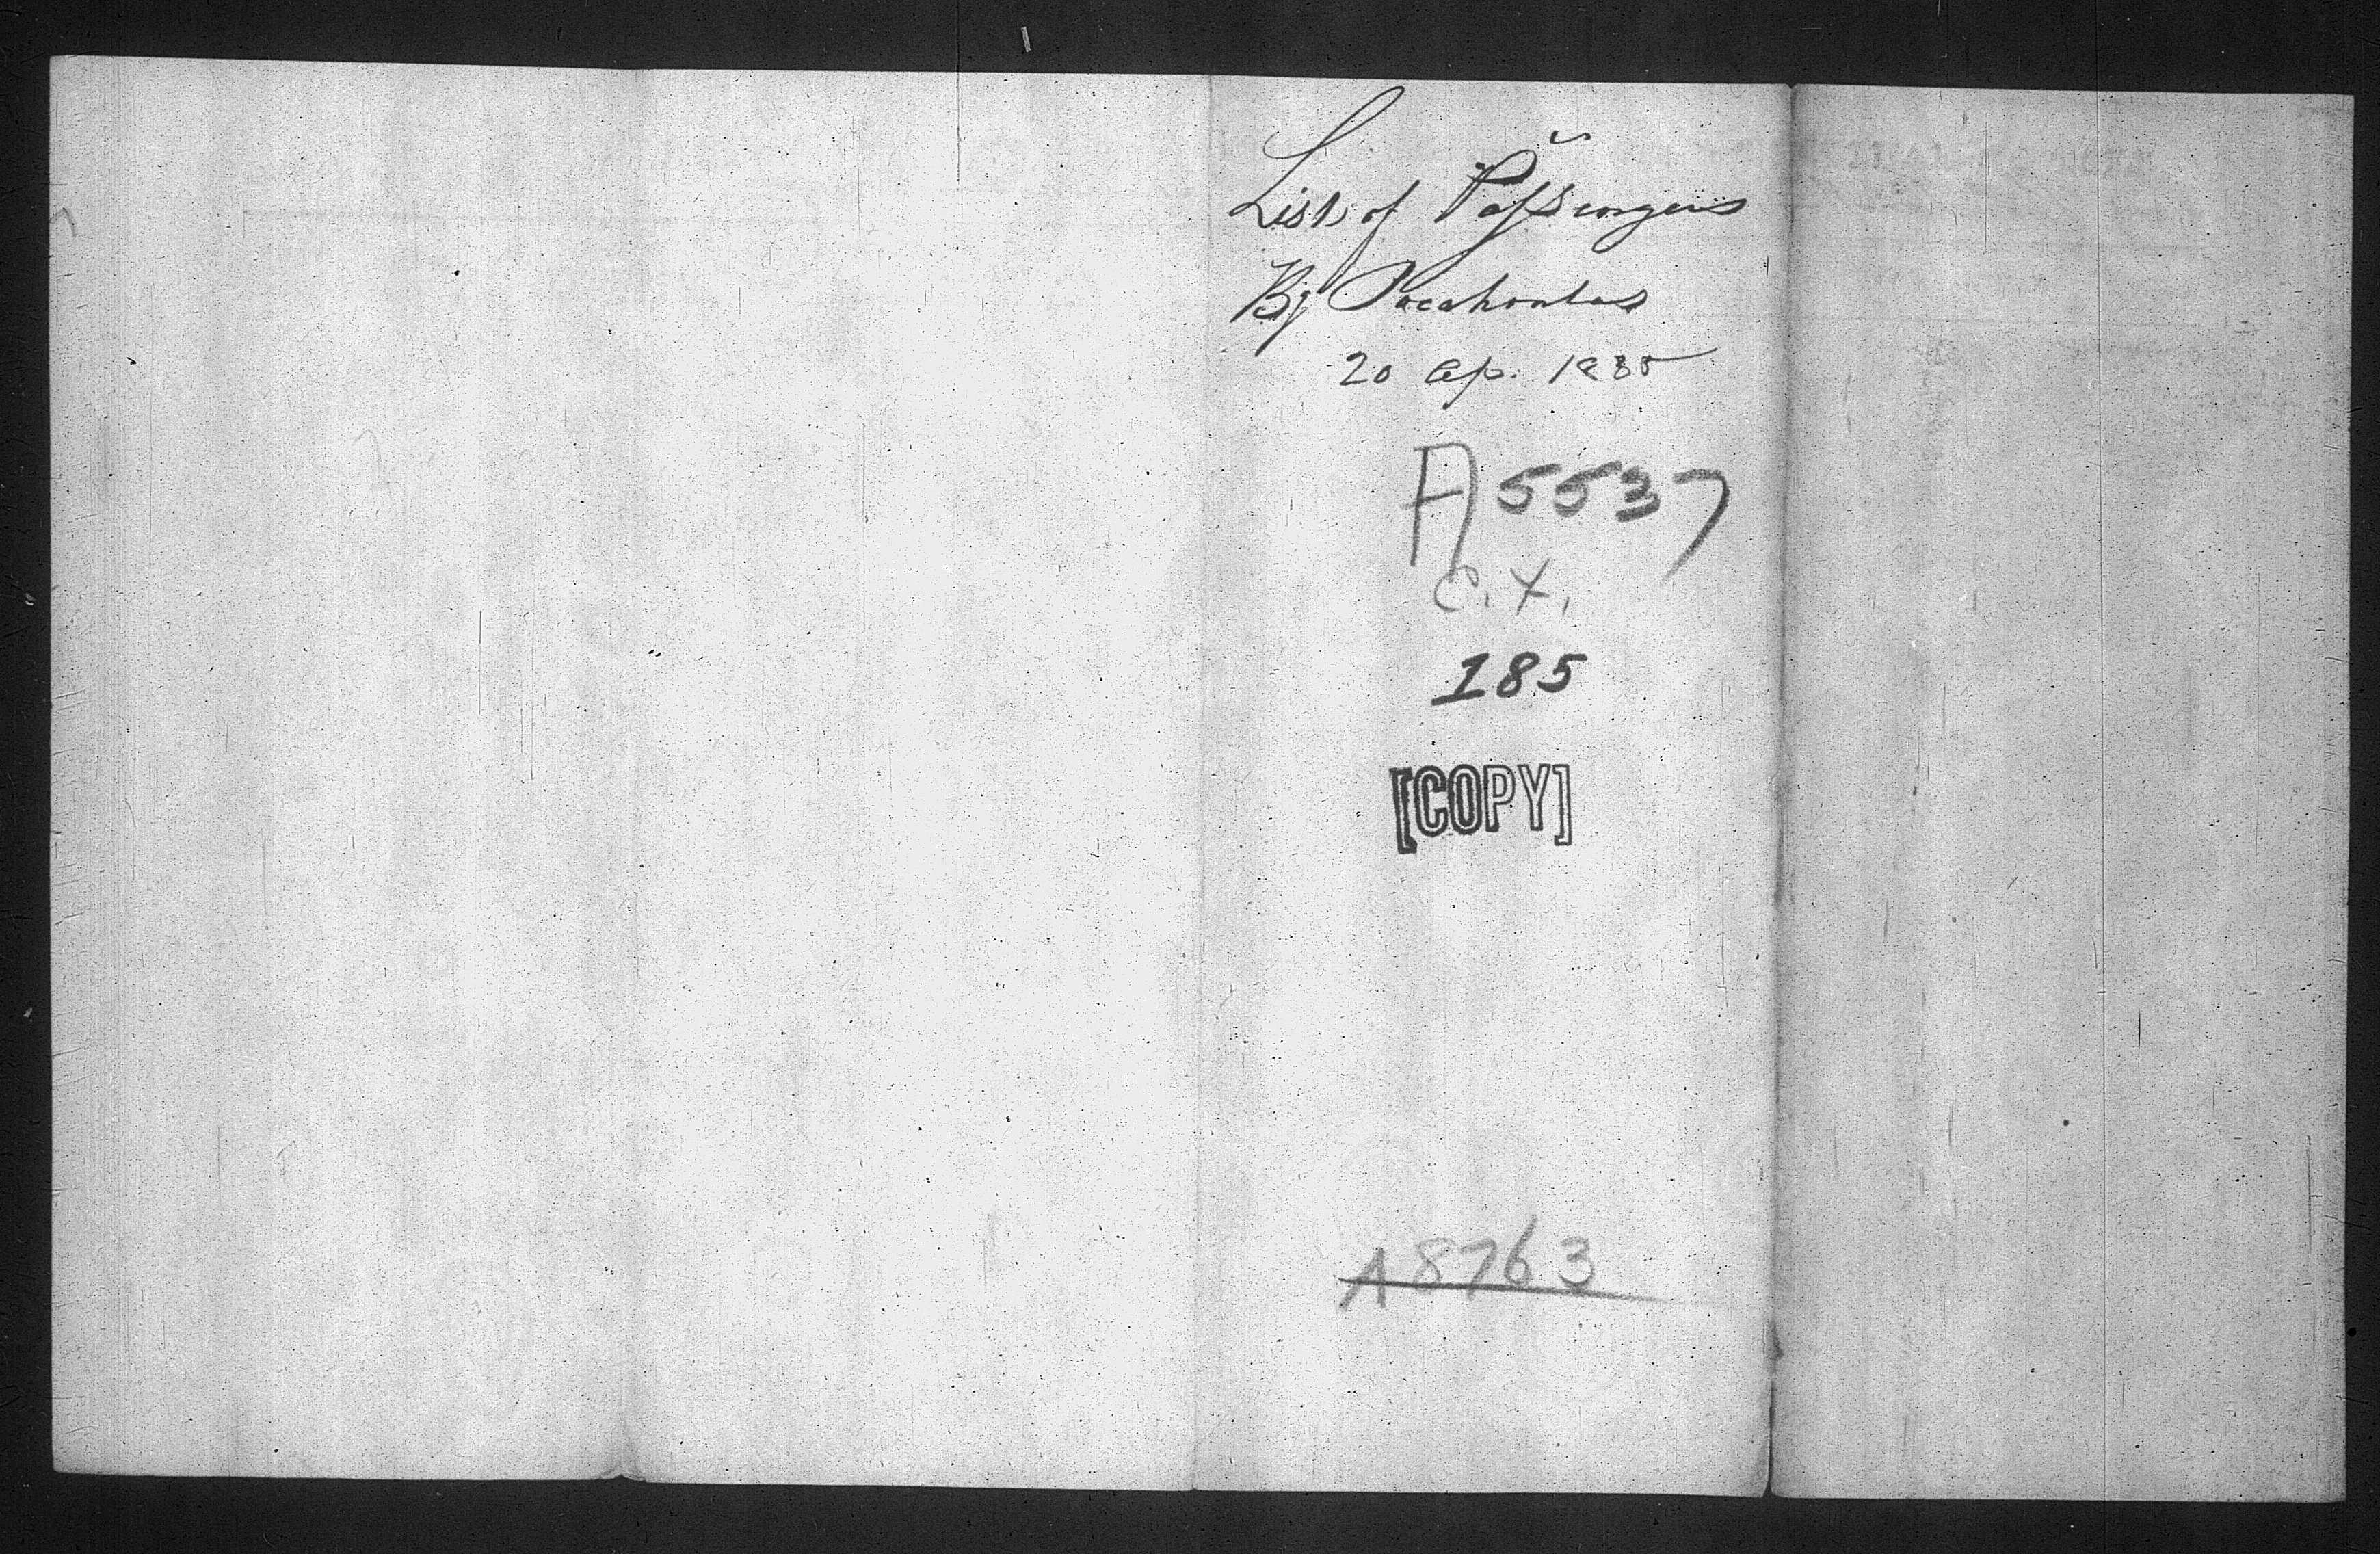 List of Passengers
By Pocahontas
20 Ap. 1835
A5537
C.X.
185
[COPY]
A8763